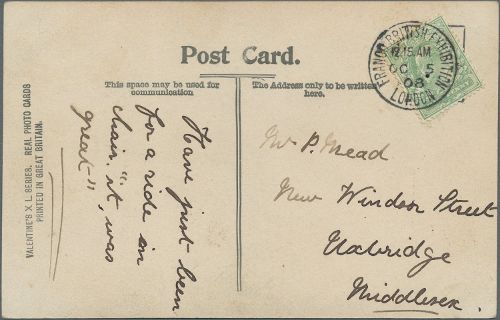 Post Card.
This space may be used for
communication
The Address only to be written
here.
FRANCO BRITISH EXHIBITION
12.15AM
OC 5
08
LONDON
VALENTINE'S X L SERIES. REAL PHOTO CARDS
PRINTED IN GREAT BRITAIN.
Have just been
for a ride in
chair. "it was
great"
Mr P. Mead
New Windsor Street
Uxbridge
Middlesex.